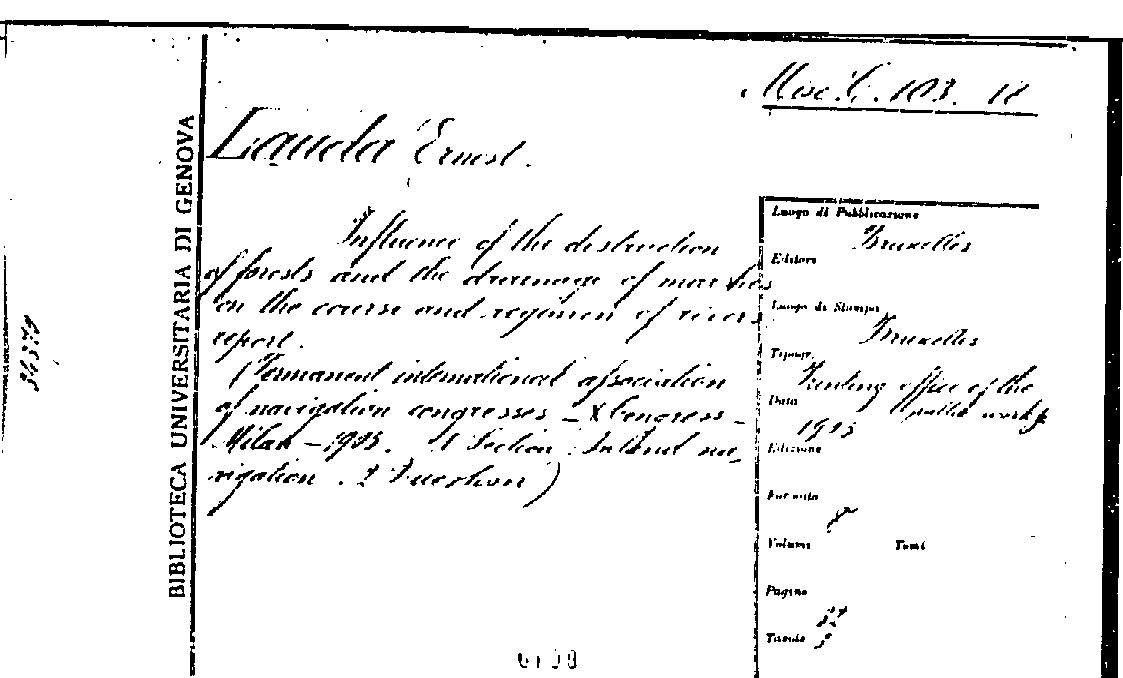 Misc. C. 103. 18
Lauda Ernest.
Influence of the destruction
of forests and the drainage of marshes
on the course and regimen of rivers
report.
(Permanent international association
of navigation congresses - X Congress -
Milan - 1905. 1 Section: Inland na-
vigation. 2 Question)
Luogo di Pubblicazione
Bruxelles
Editore
Luogo di Stampa
Bruxelles
Tipogr.
Printing office of the
public works
Data
1905
Edizione
Formato
8°
Volumi Tomi
Pagine
Tavole 3
BIBLIOTECA UNIVERSITARIA DI GENOVA